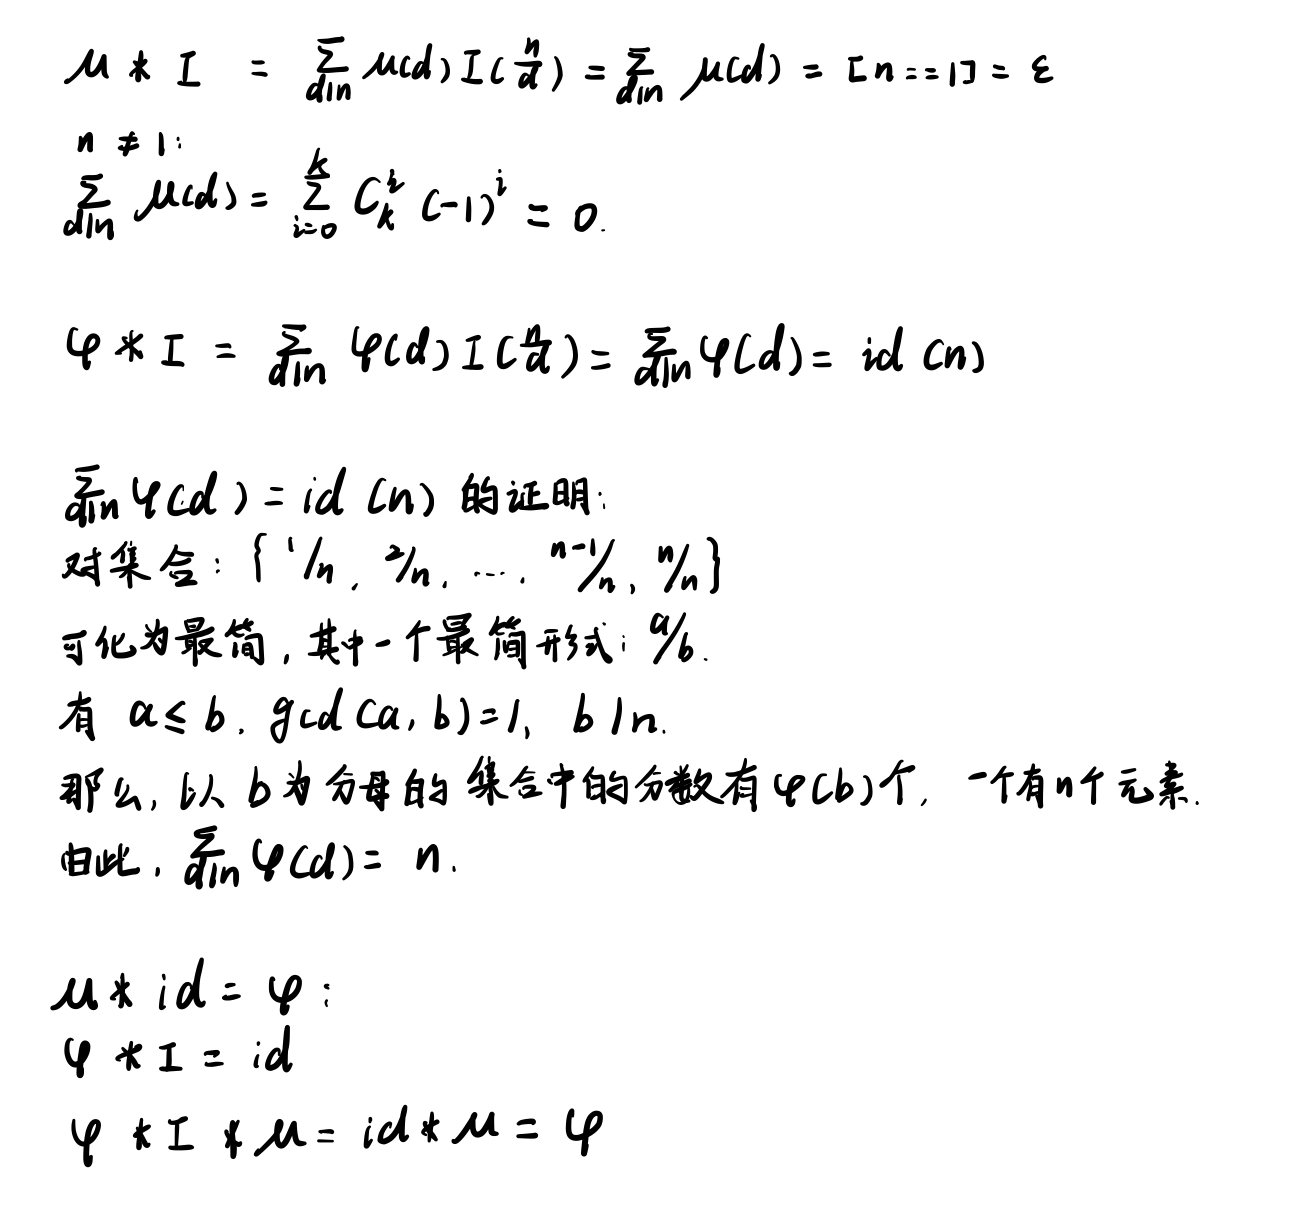 μ * I = Σ_{d|n} μ(d) I(n/d) = Σ_{d|n} μ(d) = [n==1] = ε
n ≠ 1:
Σ_{d|n} μ(d) = Σ_{i=0}^{k} C_k^i (-1)^i = 0.
φ * I = Σ_{d|n} φ(d) I(n/d) = Σ_{d|n} φ(d) = id(n)
Σ_{d|n} φ(d) = id(n) 的证明:
对集合: {1/n, 2/n, ..., n-1/n, n/n}
可化为最简, 其中一个最简形式: a/b.
有 a ≤ b, gcd(a, b)=1, b|n.
那么, 以 b 为分母的集合中的分数有 φ(b) 个, 一个有n个元素.
由此, Σ_{d|n} φ(d) = n.
μ * id = φ:
φ * I = id
φ * I * μ = id * μ = φ